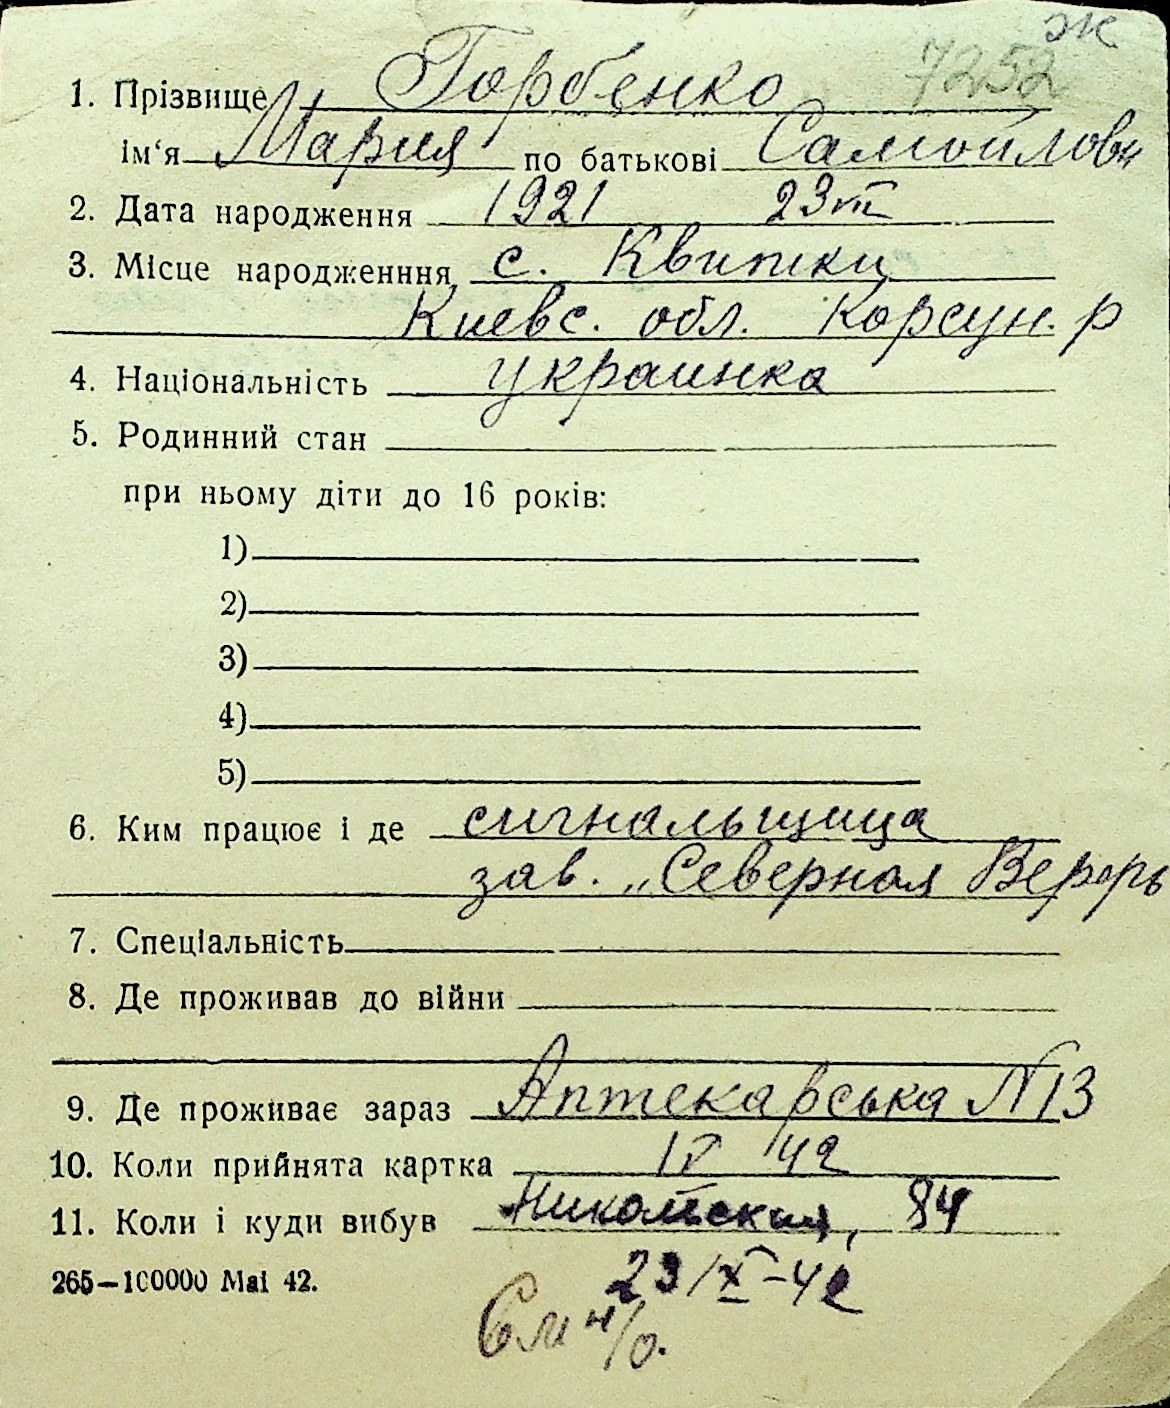 ж
7252
1. Прізвище Горбенко
ім‘я Мария по батькові Самойловн
2. Дата народження 1921 23 III
3. Місце народженння с. Квитки
Киевс. обл. Корсун. р
4. Національність украинка
5. Родинний стан
при ньому діти до 16 років:
1)
2)
3)
4)
5)
6. Ким працює і де сигнальщица
зав. „Северная Верфь
7. Спеціальність
8. Де проживав до війни
9. Де проживає зараз Аптекарська N 13
10. Коли прийнята картка IV 42
11. Коли і куди вибув Никольская, 84
265—100000 Mai 42.
23/X-42
См н/о.